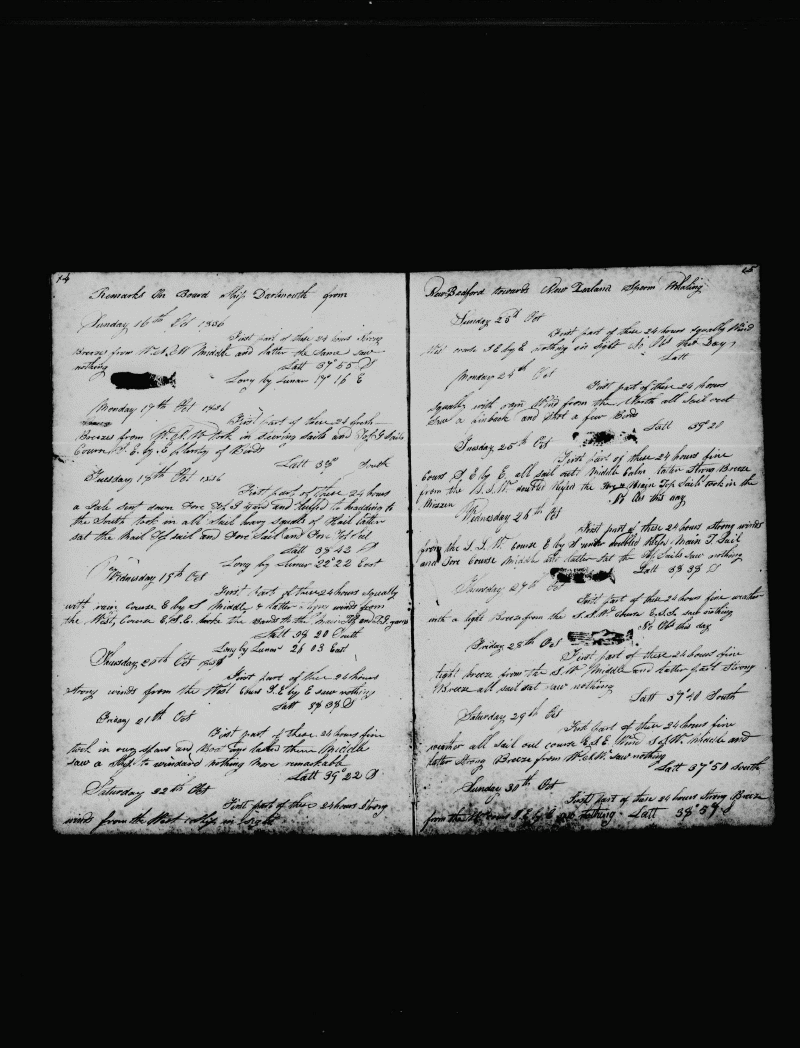 14
Remarks On Board Ship Dartmouth from
Sunday 16th Oct 1836
First part of these 24 hours Strong
Breezes from W.N.W Middle and latter the Same saw
nothing Latt 37° 55 S
Long by Lunar 17° 16 E
Monday 17th Oct 1836
First part of these 24 fresh
Breezes from W.N.W took in steering sails and
Course S.E. by E plenty of Birds
Latt 38° South
Tuesday 18th Oct 1836
First part of these 24 hours
a Gale sent down Fore Yard and heading to
the South took in all Sail heavy squalls of Hail latter
sat the Main Top sail and Fore Sail and Fore Top Sail
Latt 38 42 S
Long by Lunar 22° 22 East
Wednesday 19th Oct
First Part of these 24 hours Squally
with rain Course E by S Middle & latter winds from
the West, Course E.S.E. broke the Bands to the Main and yards
Latt 38 20 South
Long by Lunar 26 03 East
Thursday 20th Oct 1836
First part of these 24 hours
strong winds from the West Cours S.E by E saw nothing
Latt 38 38 S
Friday 21st Oct
First part of these 24 hours fine
took in our spars and them Middle
saw a ship to windard nothing more remarkable
Latt 39° 22 S
Saturday 22th Oct
First part of these 24 hours Strong
winds from the West a Ship in sight
15
New Bedford towards New Zealand Sperm Whaling
Sunday 23d Oct
First part of these 24 hours squally Wind
West course S.E by E nothing in sight No Obs this Day
Latt
Monday 24th Oct
First part of these 24 hours
squally with rain Wind from the North all sail out
Saw a finback and shot a few Bird
Latt 39° 20
Tuesday 25th Oct
First part of these 24 hours fine
Cours S.E by E. all sail out Middle Calm latter Strong Breeze
from the S.S.W. doubled Reefed the Fore & Main Top Sails took in the
Mizzen No Obs this day
Wednesday 26th Oct
First part of these 24 hours strong winds
from the S.S.W. Course E by S under doubled Reefs Main T. Sail
and Fore Course Middle and latter Sat the Top Sails saw nothing
Latt 38 38 S
Thursday 27th Oct
First part of these 24 hours fine weather
with a light Breeze from the S.S.W. Course E.S.E. saw nothing
No Obs this day
Friday 28th Oct
First part of these 24 hours fine
light breeze from the S.W. Middle and latter part Strong
Breeze all sail sat saw nothing
Latt 37° 40 South
Saturday 29th Oct
First part of these 24 hours fine
weather all sail out course E.S.E. Wind S.S.W. Middle and
latter Strong Breeze from W.S.W. saw nothing
Latt 37° 50 South
Sunday 30th Oct
First part of these 24 hours Strong Breeze
from the W. Cours S.E by E saw nothing - Latt 38° 57 S